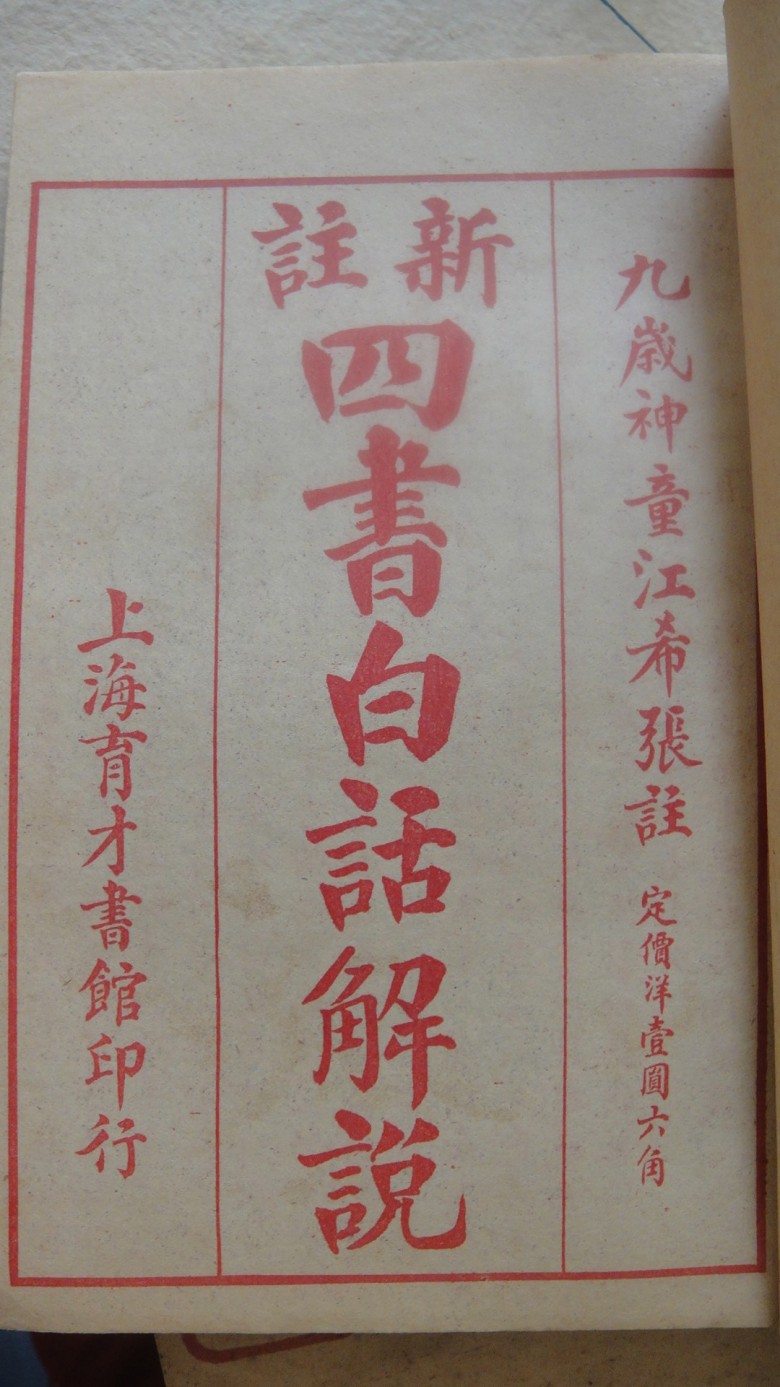 九歲神童江希張註 定價洋壹圓六角
新註
四書白話解說
上海育才書館印行